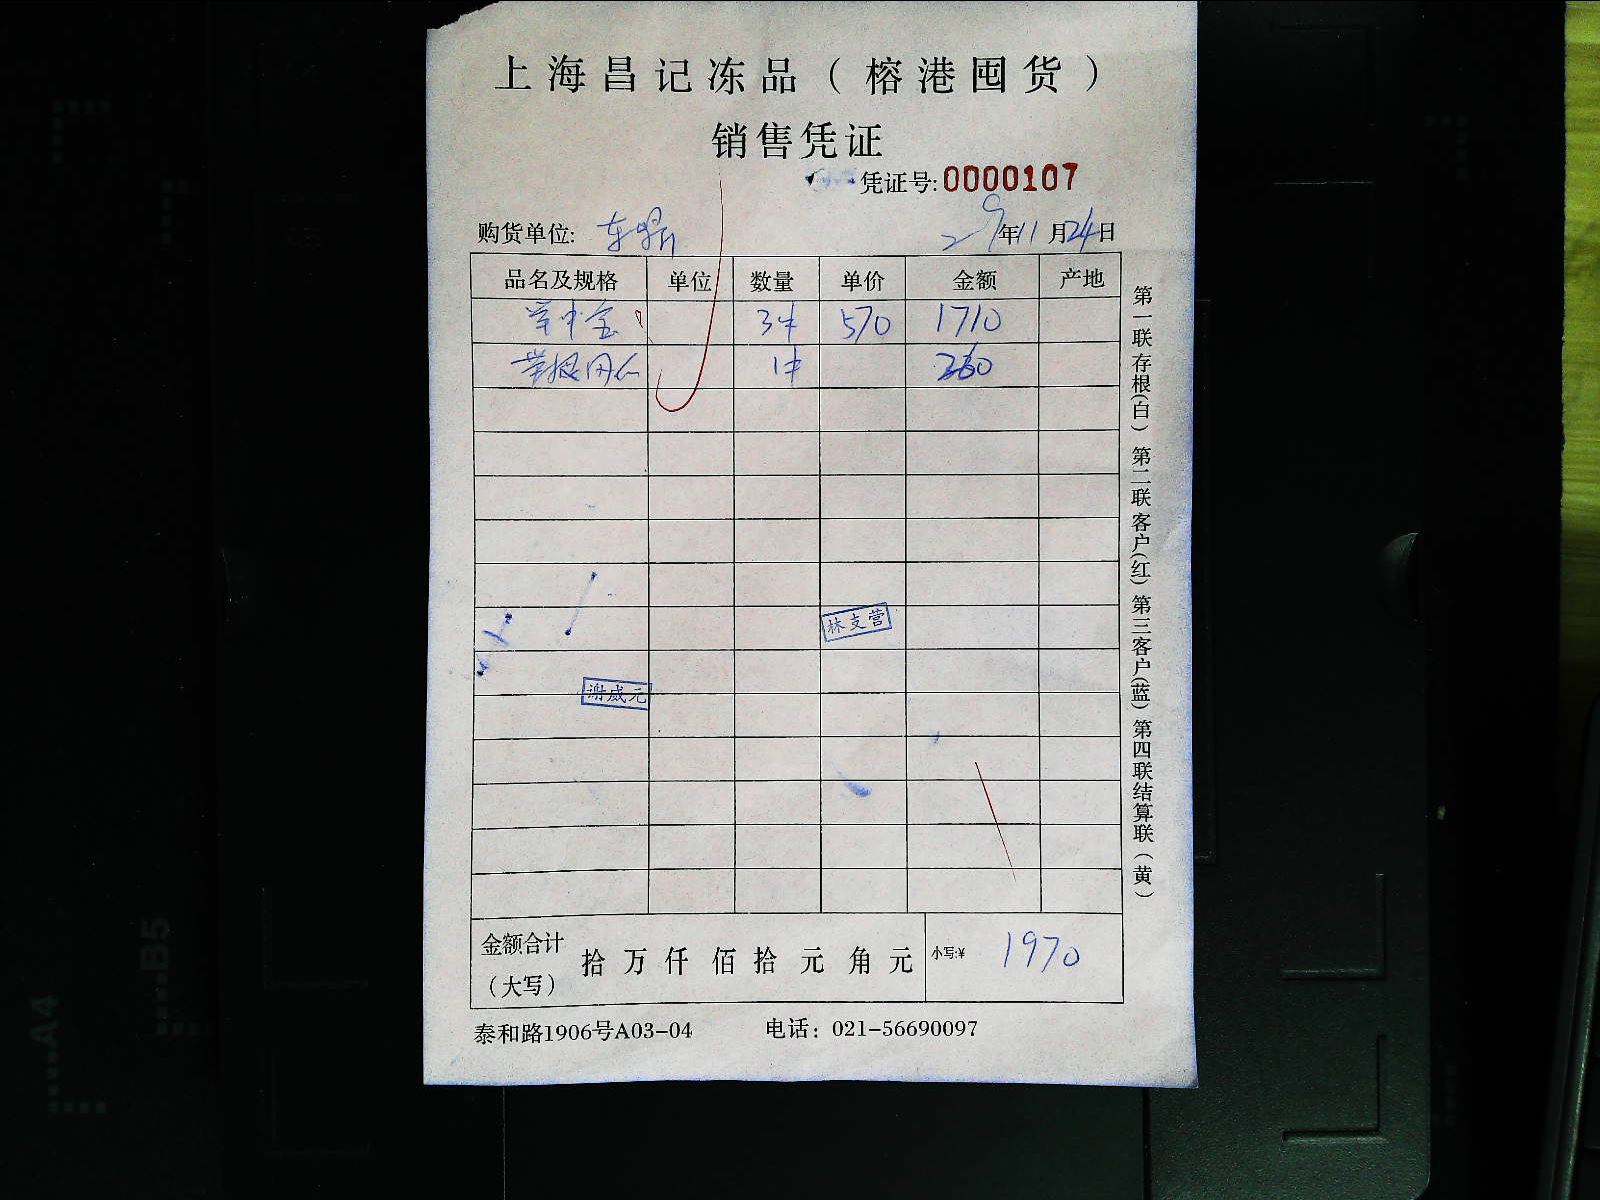 上海昌记冻品（榕港囤货）
销售凭证
凭证号:0000107
购货单位: 东鼎 29年11月24日
品名及规格 单位 数量 单价 金额 产地
3件 570 1710
1件 260
林支营
谢威元
金额合计（大写） 拾 万 仟 佰 拾 元 角 元 小写:¥ 1970
泰和路1906号A03-04 电话：021-56690097
第一联存根(白) 第二联客户(红) 第三客户(蓝) 第四联结算联(黄)
A4
B5